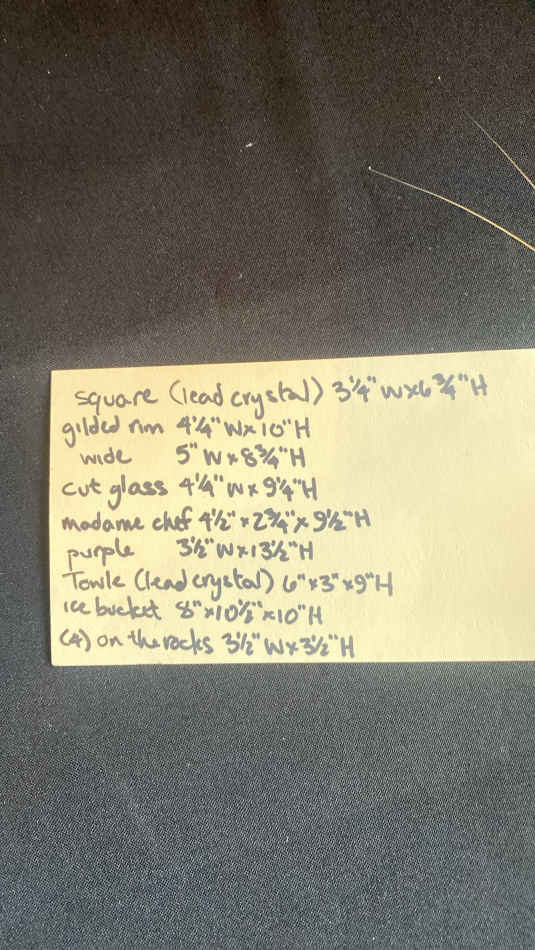 square (lead crystal) 3¼" W x 6¾" H
gilded rim 4¼" W x 10" H
wide 5" W x 8¾" H
cut glass 4¼" W x 9¼" H
madame chef 4½" x 2¾" x 9½" H
purple 3½" W x 13½" H
Towle (lead crystal) 6" x 3" x 9" H
ice bucket 8" x 10½" x 10" H
(4) on the rocks 3½" W x 3½" H